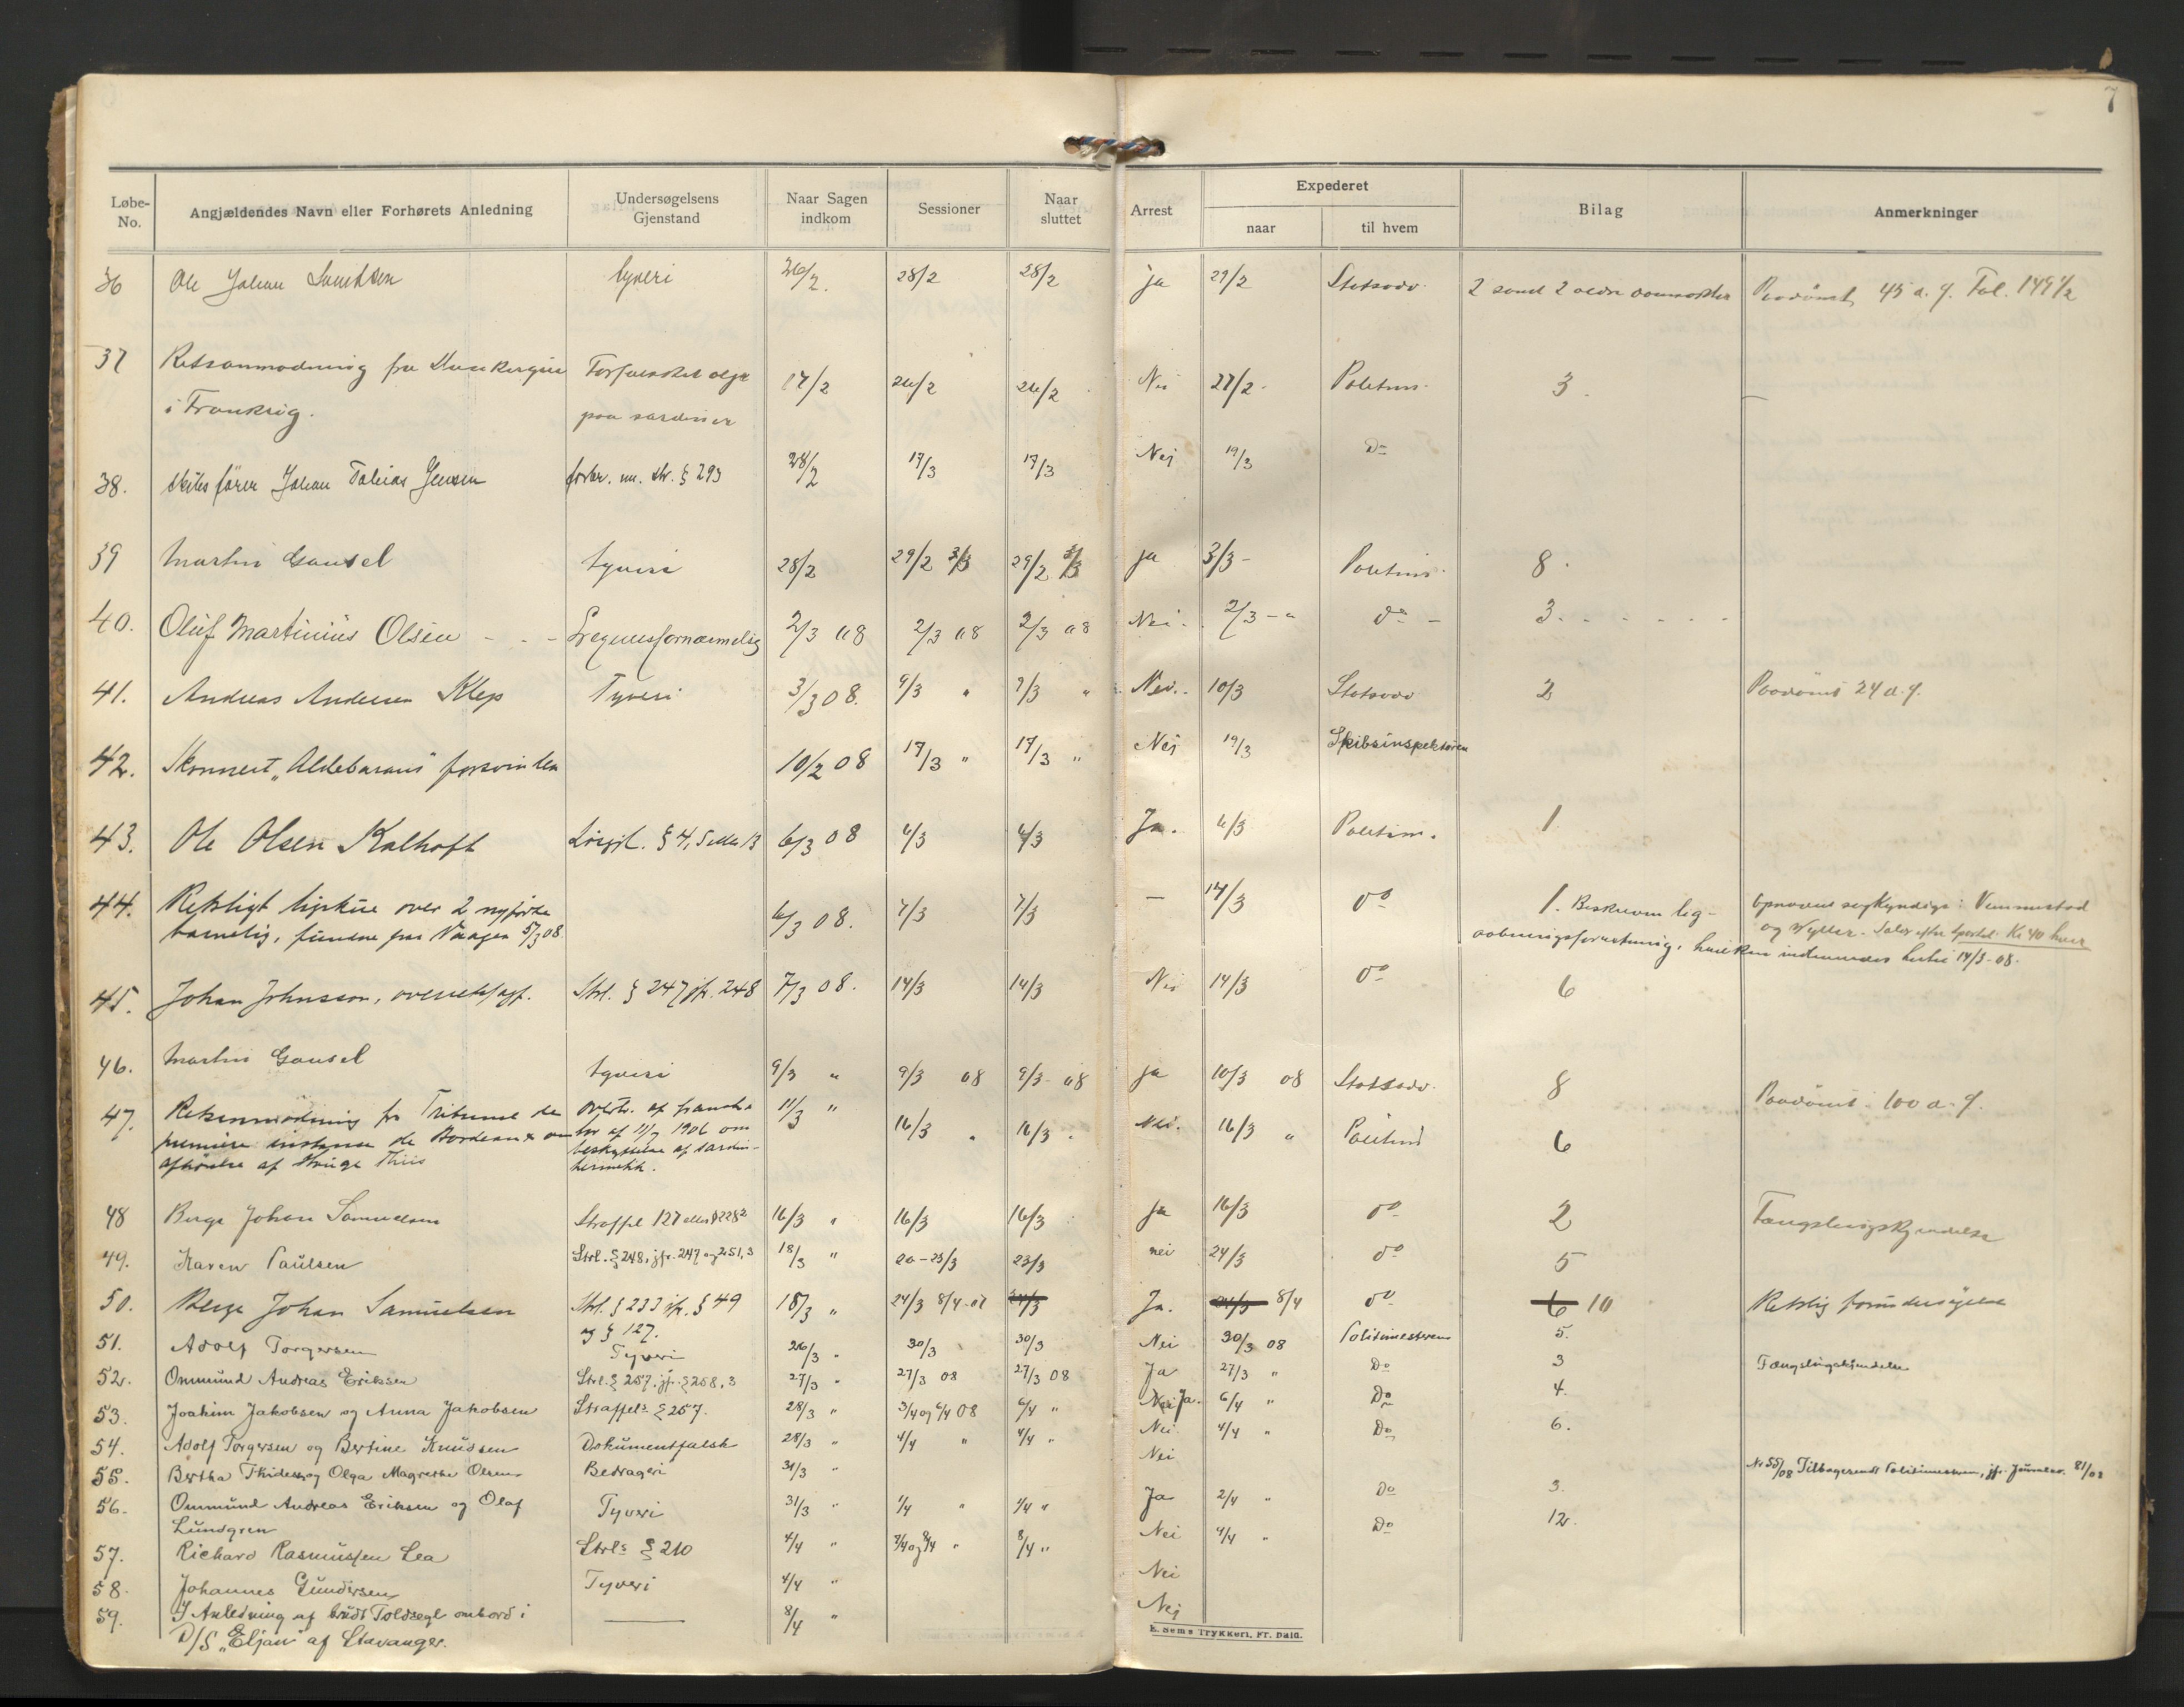 7
Løbe-No. Angjældendes Navn eller Forhørets Anledning Undersøgelsens Gjenstand Naar Sagen indkom Sessioner Naar sluttet Arrest Expederet naar til hvem Bilag Anmerkninger
36 Ole Johan tyveri 26/2. 28/2 28/2 ja 29/2 Statsadv. 2 samt 2 ældre Paadømt 45 a. g. Fol. 149 1/2
37 Retsanmodning fra Dunkerque Forfalsket olje 17/2 26/2 26/2 Nei 27/2 Politim. 3
i Frankrig. paa sardiner
38. skibsfører Johan Tobias Jensen forbr. m. str. § 293 28/2 17/3 17/3 Nej 19/3 Do
39 Martin Gausel tyveri 28/2 29/2 3/3 29/2 3/3 ja 3/3 - Politim. 8
40. Oluf Martinius Olsen - - - Legemsfornærmelse 2/3 08 2/3 08 2/3 08 Nei. 2/3 - " do - 3
41. Andreas Andersen Klep Tyveri 3/3 08. 9/3 " 9/3 " Nei. 10/3 Statsadv 2 Paadømt 24 a. g.
42. Skonnert „Aldebarans" forsvinden 10/2 08 17/3 " 17/3 " Nej 19/3 Skibsinspektøren
43. Ole Olsen Kalhoft Løsgjl. § 4, 5 eller 13 6/3 08 6/3 6/3 Ja. 6/3 Politim. 1
44. Retsligt ligskue over 2 nyfødte 6/3 08. 7/3 7/3 — 14/3 do 1. Beskreven lig- Opnævnt sagkyndige: Vemmestad
barnelig, fundne paa Vaagen 5/3 08 aabningsforretning, hvilken indsendes hertil 14/3-08. og Kr 40 hver
45. Johan Johnsson, Strl. § 247 jfr. 248 7/3 08. 14/3 14/3 Nei 14/3 do 6
46. Martin Gausel tyveri 9/3 " 9/3 08 9/3 - 08 ja 10/3 08 Statsadv. 8 Paadømt. 100 a. g.
47. Retsanmodning fr Tribunal de overtr. af franske 11/3 " 16/3 " 16/3 " Nei. 16/3 " Politim 6
premiere instanse de Bordeaux om lov af 11/7 1906 om
afhørelse af Thiis beskyttelse af sardin-
hermetik.
48 Berge Johan Samuelsen Straffel 127 eller § 228² 16/3 " 16/3 16/3 ja 16/3 do 2 Fængslingskjendelse
49. Karen Paulsen Strl. § 248, jfr. 247 og 251, 3 18/3 " 20 - 23/3 23/3 nei 24/3 do 5
50. Berge Johan Samuelsen Strl. § 233 jfr. § 49 18/3 " 24/3 8/4 - 08 24/3 Ja. 24/3 8/4 do 6 10 Retslig forundersøgelse
og § 127.
51. Adolf Torgersen Tyveri 26/3 " 30/3 30/3 Nei 30/3 08 Politimesteren 5.
52. Ommund Andreas Eriksen Strl. § 257, jfr. § 258, 3 27/3 " 27/3 08 27/3 08 Ja 27/3 " Do 3 Fængslingskjendelse
53. Joakim Jakobsen og Anna Jakobsen Straffels § 257. 28/3 " 3/4 og 6/4 08 6/4 " Nei Ja. 6/4 " Do 4.
54. Adolf Torgersen og Bertine Knudsen Dokumentfalsk 28/3 " 4/4 " 4/4 " Nei. 4/4 " Do 6.
55. Bertha og Olga Magrethe Olsen Bedrageri 31/3 " Nei No 55/08 Tilbagesendt Politimesteren, jfr. Journalno. 81/08
56. Ommund Andreas Eriksen og Olaf Tyveri 31/3 " 1/4 " 1/4 " Ja 2/4 " Do 3.
Lundgren
57. Richard Rasmussen Lea Strls § 210 4/4 " 7/4 og 8/4 " 8/4 " Nei 4/4 " Do 12.
58. Johannes Gundersen Tyveri 4/4 " Nei
59. I Anledning af brudt Toldsegl ombord i —— 8/4 " Nej
D/S „Eljan" af Stavanger.
E. Sems Trykkeri, Fr. hald.